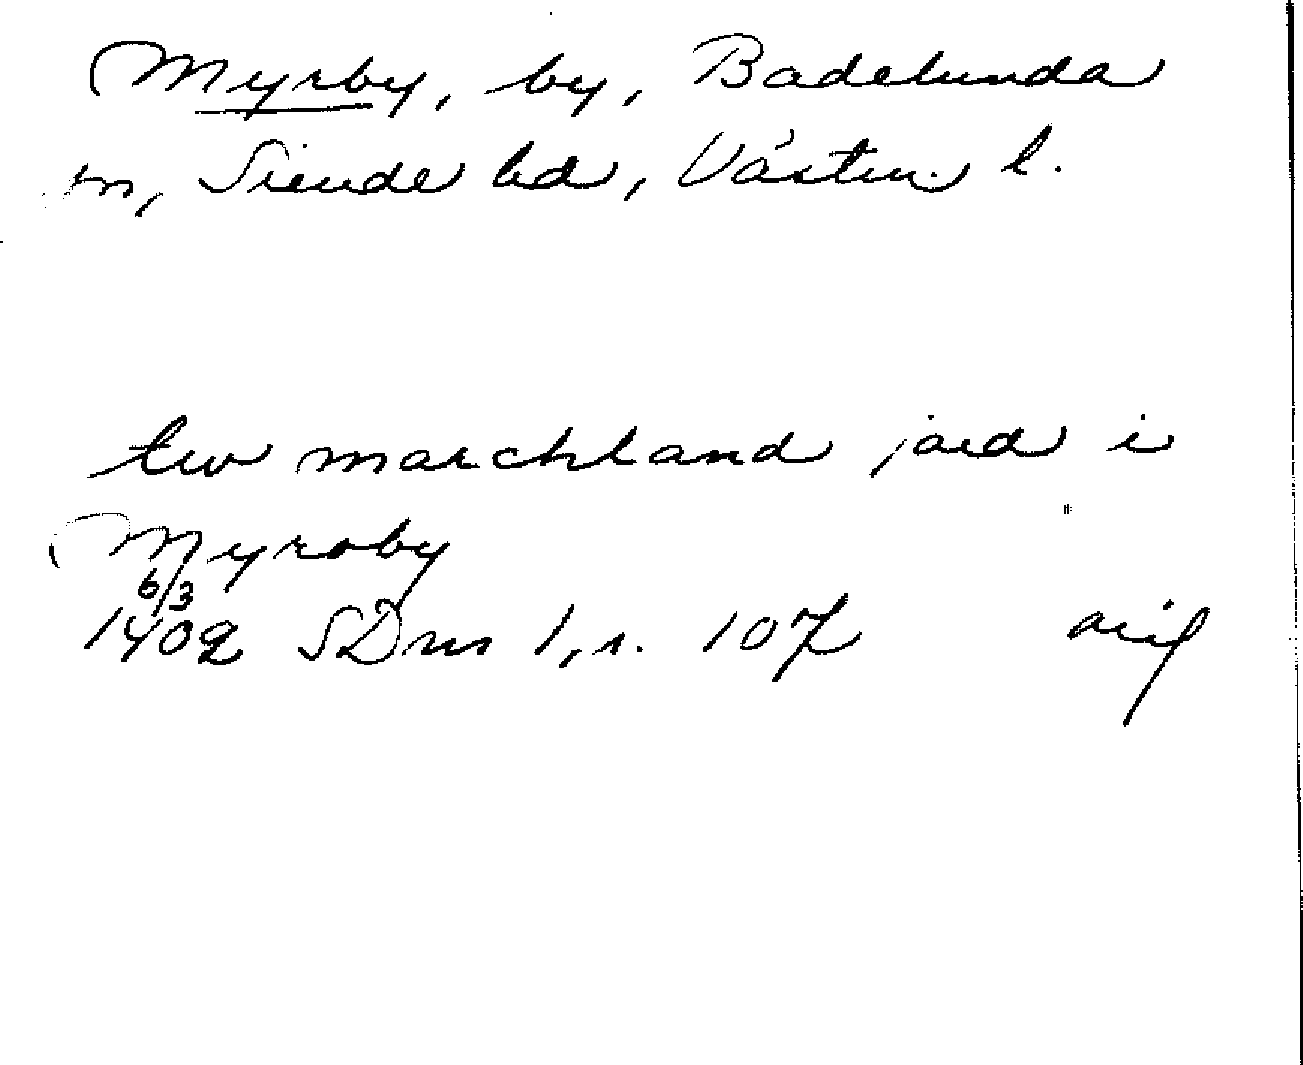 Myrby, by, Badelunda
sn, Siende hd, Västm. l.
tw marchland jord i
Myroby
6/3
1402 SDns 1, s. 107 orig